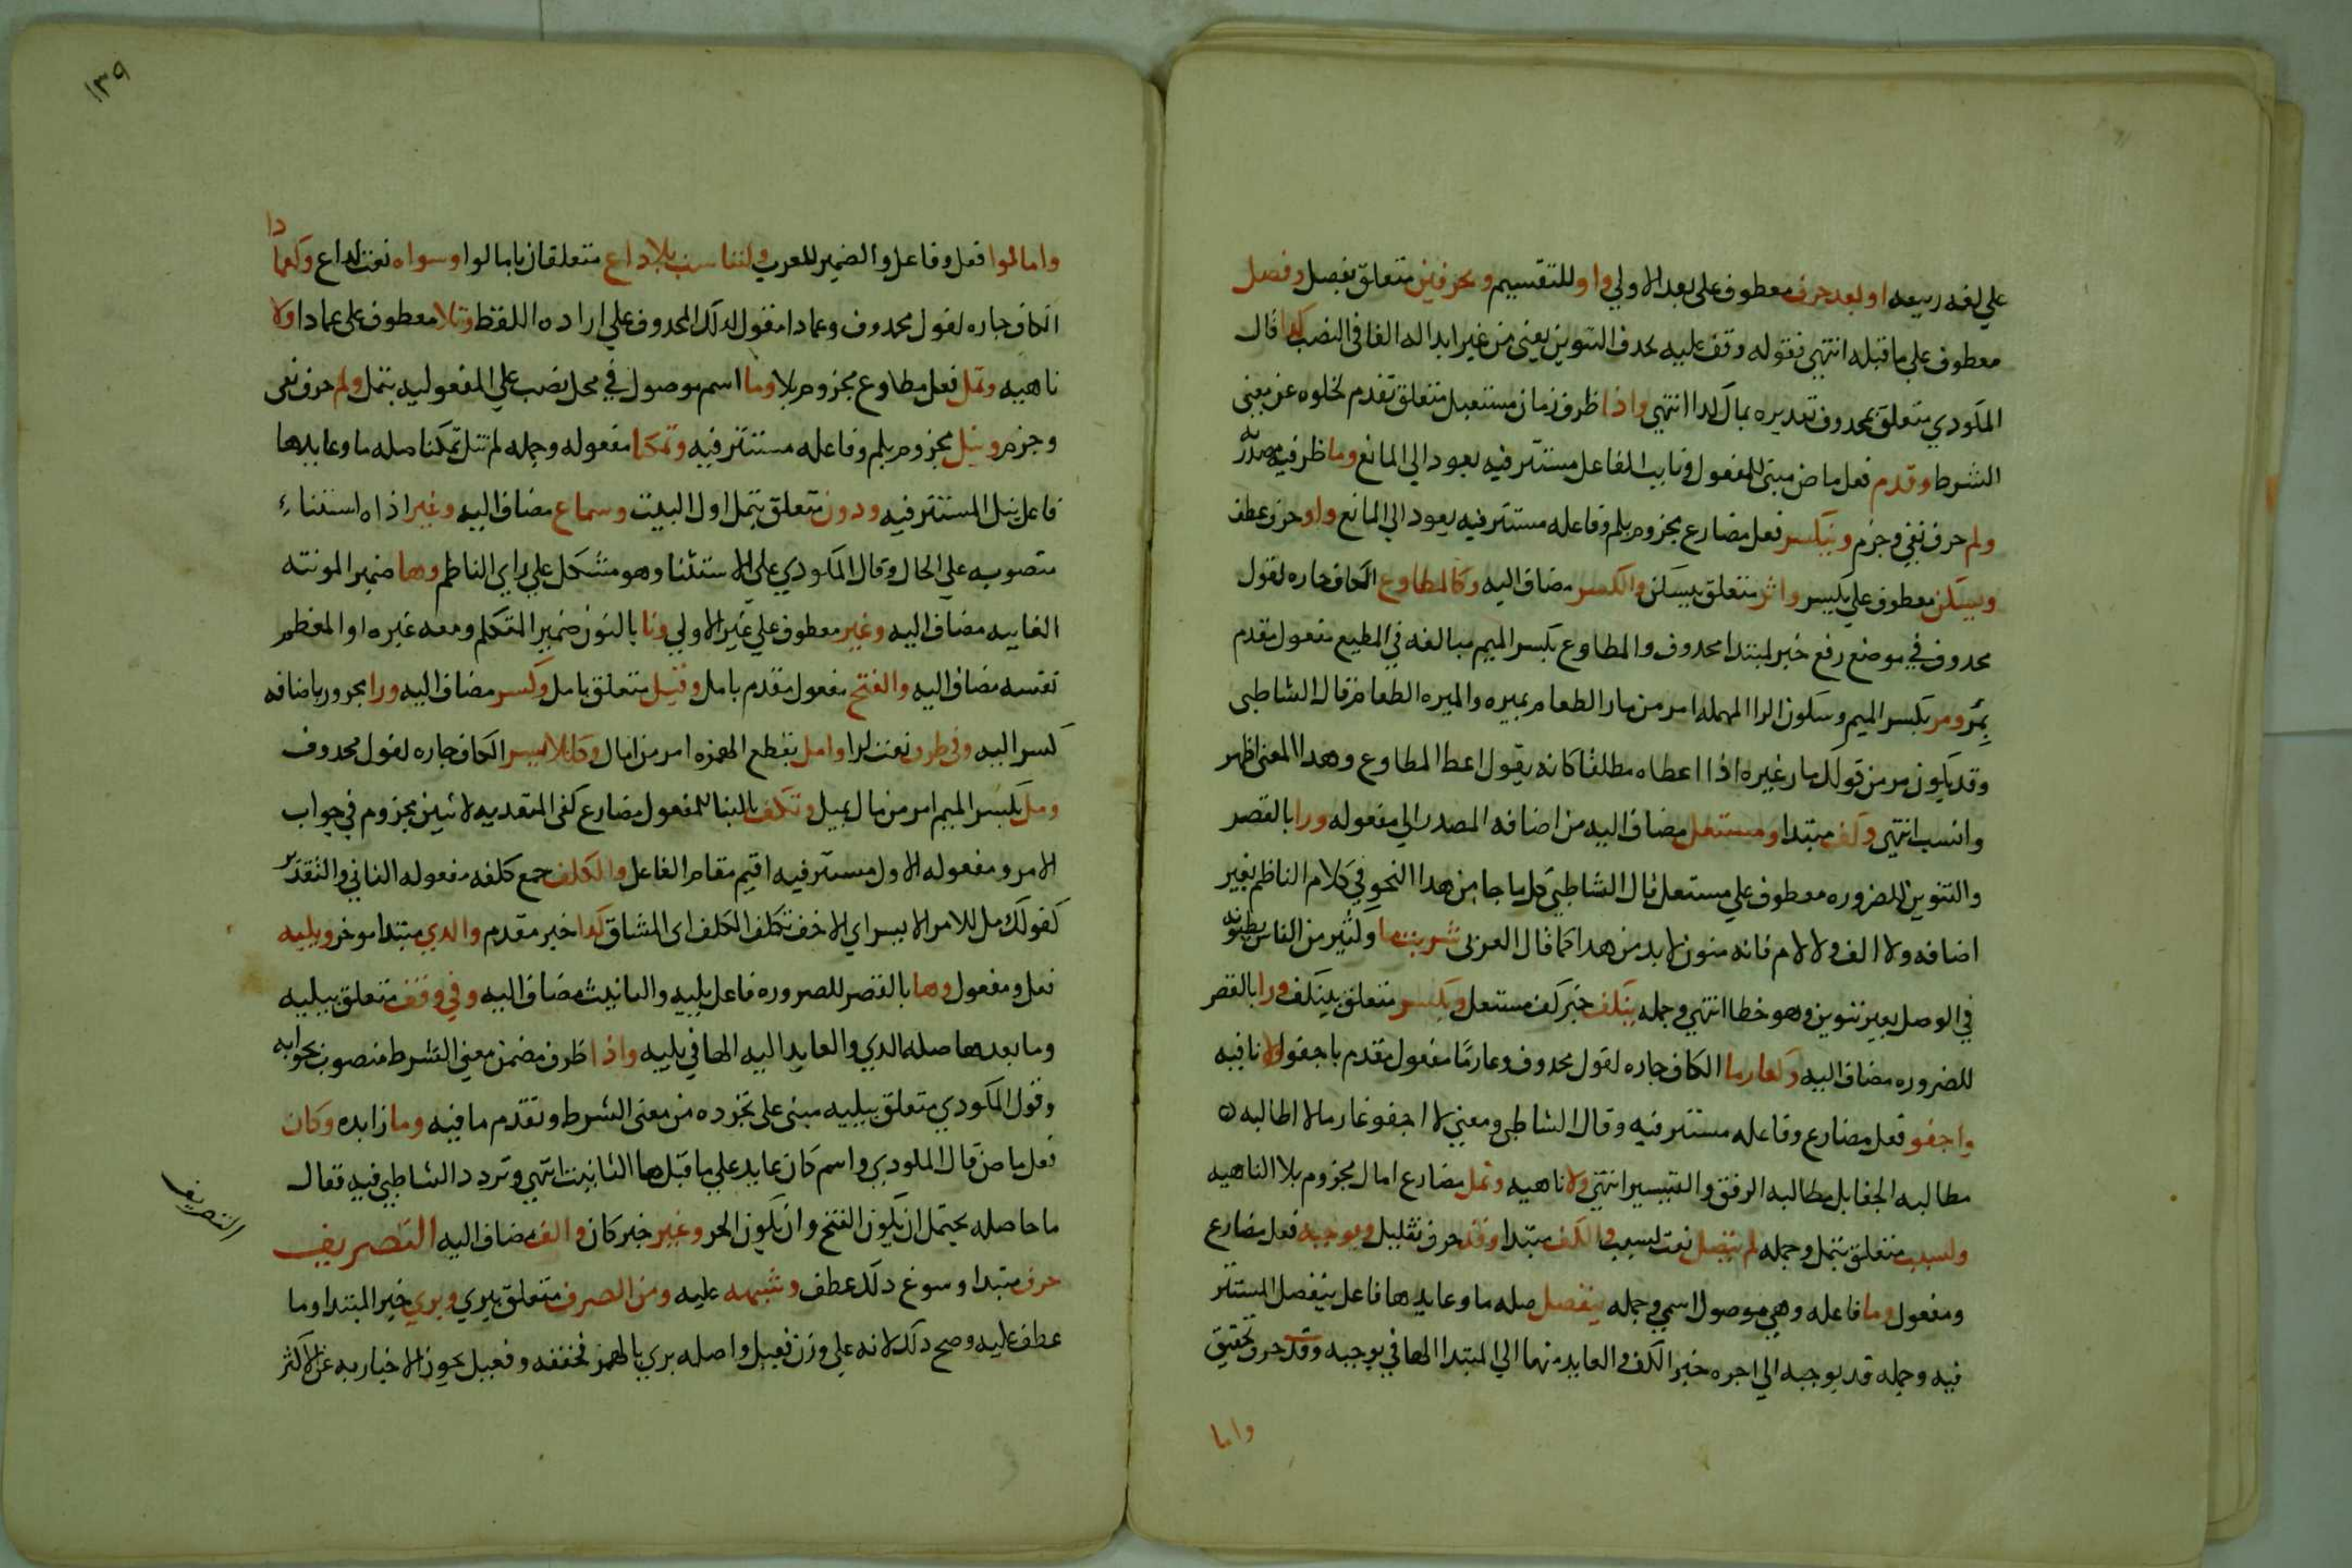 علي لغه ربيعه او بعد حرف معطوف علي بعد الاولي واو للتقسيم وبحرفين متعلق بفصل وفصل
معطوف علي ما قبله انتهي فقوله وقف عليه بحدف التنوين يعنى من غير ابداله الفا في النصب كدا قال
المكودي متعلق بمحدوف تقديره بمال كدا انتهي واذا ظرف زمان مستقبل متعلق بقدم لخلوه عن معنى
الشرط وقدم فعل ماض مبنى للمفعول ونايب الفاعل مستتر فيه يعود الي المانع وما ظرفيه مصدريه
ولم حرف نفي وجزم وينكسر فعل مضارع مجزوم بلم وفاعله مستتر فيه يعود الي المانع واو حرف عطف
ويسكن معطوف علي يكسر واثر متعلق بيسكن والكسر مضاف اليه وكالمطاوع الكاف جاره لقول
محدوف في موضع رفع خبر لمبتدا محدوف والمطاوع بكسر الميم مبالغه في المطيع مفعول مقدم
بمر ومر بكسر الميم وسكون الرا المهمله امر من مار الطعام يميره والميره الطعام قال الشاطبى
وقد يكون مر من قولك مار غيره اذا اعطاه مطلقا كانه يقول اعط المطاوع وهدا المعنى اظهر
وانسب انتهي وكف مبتدا ومستعل مضاف اليه من اضافه المصدر الي مفعوله ورا بالقصر
والتنوين للضروره معطوف علي مستعل قال الشاطبي كل ما جا من هدا النحو في كلام الناظم بغير
اضافه ولا الف ولا لام فانه منون لا بد من هدا كما قال العربى شربت ما وكثير من الناس يظنونه
في الوصل بغير تنوين وهو خطا انتهي وجمله ينكف خبر كف مستعل وبكسر متعلق بينكف ورا بالقصر
للضروره مضاف اليه وكغارما الكاف جاره لقول محدوف وغارمًا مفعول مقدم باجفو ولا نافيه
واجفو فعل مضارع وفاعله مستتر فيه وقال الشاطبى ومعني لا اجفو غارما لا اطالبه
مطالبه الجفا بل مطالبه الرفق والتيسير انتهي ولا ناهيه وتمل مضارع امال مجزوم بلا الناهيه
ولسبب متعلق بتمل وجمله لم يتصل نعت لسبب والكف مبتدا وقد حرف تقليل ويوجبه فعل مضارع
ومفعول وما فاعله وهي موصول اسمي وجمله ينفصل صله ما وعايدها فاعل ينفصل المستتر
فيه وجمله قد يوجبه الي اخره خبر الكف والعايد منها الي المبتدا الها في يوجبه وقد حرف تحقيق
واما
١٣٩
وامالوا فعل وفاعل والضمير للعرب ولتناسب بلا داع متعلقان بامالوا وسواه نعت لداع وكعمادا
الكاف جاره لقول محدوف وعمادا مقول لذلك المحدوف علي اراده اللفظ وتلا معطوف علي عمادا ولا
ناهيه وتمل فعل مطاوع مجزوم بلا وما اسم موصول في محل نصب علي المفعوليه بتمل ولم حرف نفى
وجزم وينل مجزوم بلم وفاعله مستتر فيه وتمكنا مفعوله وجمله لم ينل تمكنا صله ما وعايدها
فاعل ينل المستتر فيه ودون متعلق بتمل اول البيت وسماع مضاف اليه وغير اداه استثناء
منصوبه علي الحال وقال المكودي علي الاستثنا وهو مشكل علي راي الناظم وها ضمير المونثه
الغايبه مضاف اليه وغير معطوف علي غير الاولي ونا بالنون ضمير المتكلم ومعه غيره او المعظم
نفسه مضاف اليه والفتح مفعول مقدم بامل وقبل متعلق بامل وكسر مضاف اليه ورا مجرور باضافه
كسر اليه وفي طرف نعت لرا وامل بقطع الهمزه امر من امال وكللايسر الكاف جاره لقول محدوف
ومل بكسر الميم امر من مال يميل وتكف بالبنا للمفعول مضارع كفى المتعديه لاثنين مجزوم في جواب
الامر ومفعوله الاول مستتر فيه اقيم مقام الفاعل والكلف جمع كلفه مفعوله الثاني والتقدير
كقولك مل للامر الايسر اي الاخف تكف الكلف اى المشاق كدا خبر مقدم والدي مبتدا موخر ويليه
فعل ومفعول وها بالقصر للضروره فاعل يليه والتانيث مضاف اليه وفي وقف متعلق بيليه
وما بعدها صله الدي والعايد اليه الها في يليه واذا ظرف مضمن معنى الشرط منصوب بجوابه
وقول المكودي متعلق بيليه مبنى على تجرده من معنى الشرط وتقدم ما فيه وما زايده وكان
فعل ماض قال المكودي واسم كان عايد علي ما قبل ها التانيث انتهي وتردد الشاطبي فيه فقال
ما حاصله يحتمل ان يكون الفتح وان يكون الحر وغير خبر كان والف مضاف اليه التصريف
حرف مبتدا وسوغ دلك عطف وشبهه عليه ومن الصرف متعلق ببري وبري خبر المبتدا وما
عطف عليه وصح دلك لانه علي وزن فعيل واصله بري بالهمز فخففه وفعيل يجوز الاخبار به عن الاكثر
التصريف